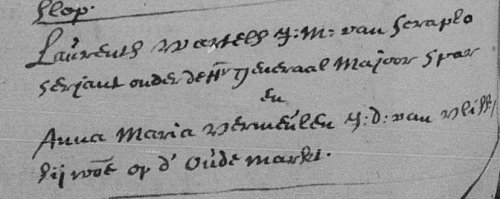 slop.
Laurents Wartels J: M: van Seraplo
serjant onder de Hr Generaal Majoor Spar
en
Anna Maria Vermeulen J: d: van Vliss
hij woe op d' Oude markt.